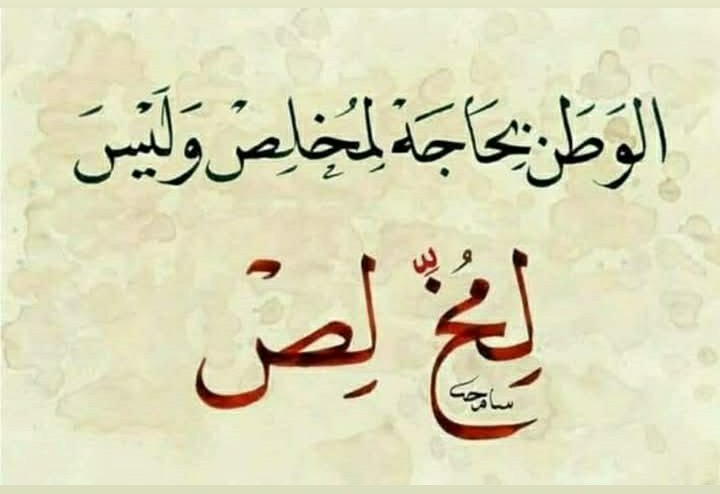 الوَطَن بِحَاجَهْ لِمُخلِصْ وَلَيْسَ
لِمُخِّ لِصْ